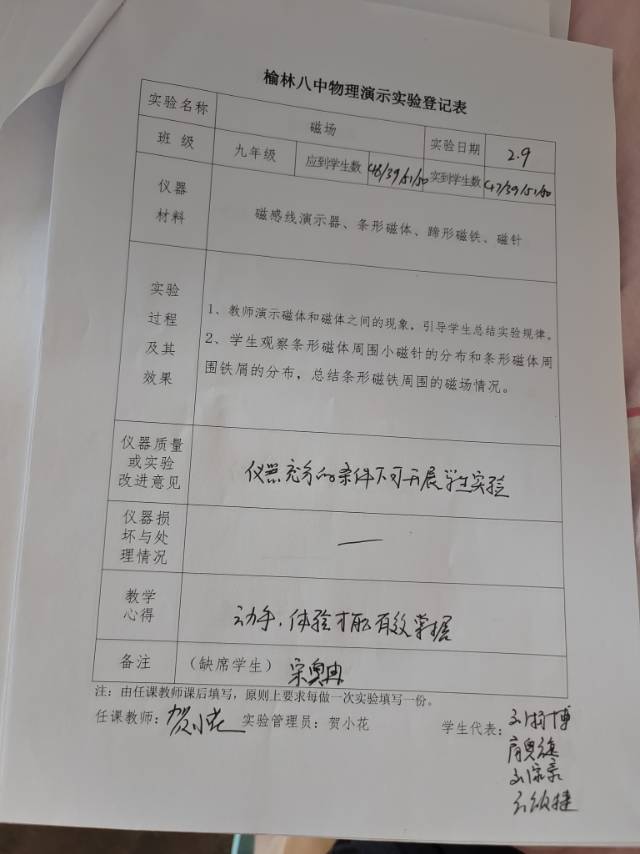 榆林八中物理演示实验登记表
实验名称 磁场 实验日期 2.9
班 级 九年级 应到学生数 48/39/51/50 实到学生数 47/39/51/50
仪器
材料
磁感线演示器、条形磁体、蹄形磁铁、磁针
实验
过程
及其
效果
1、教师演示磁体和磁体之间的现象,引导学生总结实验规律。
2、学生观察条形磁体周围小磁针的分布和条形磁体周
围铁屑的分布,总结条形磁铁周围的磁场情况。
仪器质量
或实验
改进意见
仪器充分的条件下可开展学生实验
仪器损
坏与处
理情况
—
教学
心得
动手,体验才能有效掌握
备注 (缺席学生) 宋奥冉
注:由任课教师课后填写,原则上要求每做一次实验填写一份。
任课教师:贺小花 实验管理员:贺小花 学生代表: